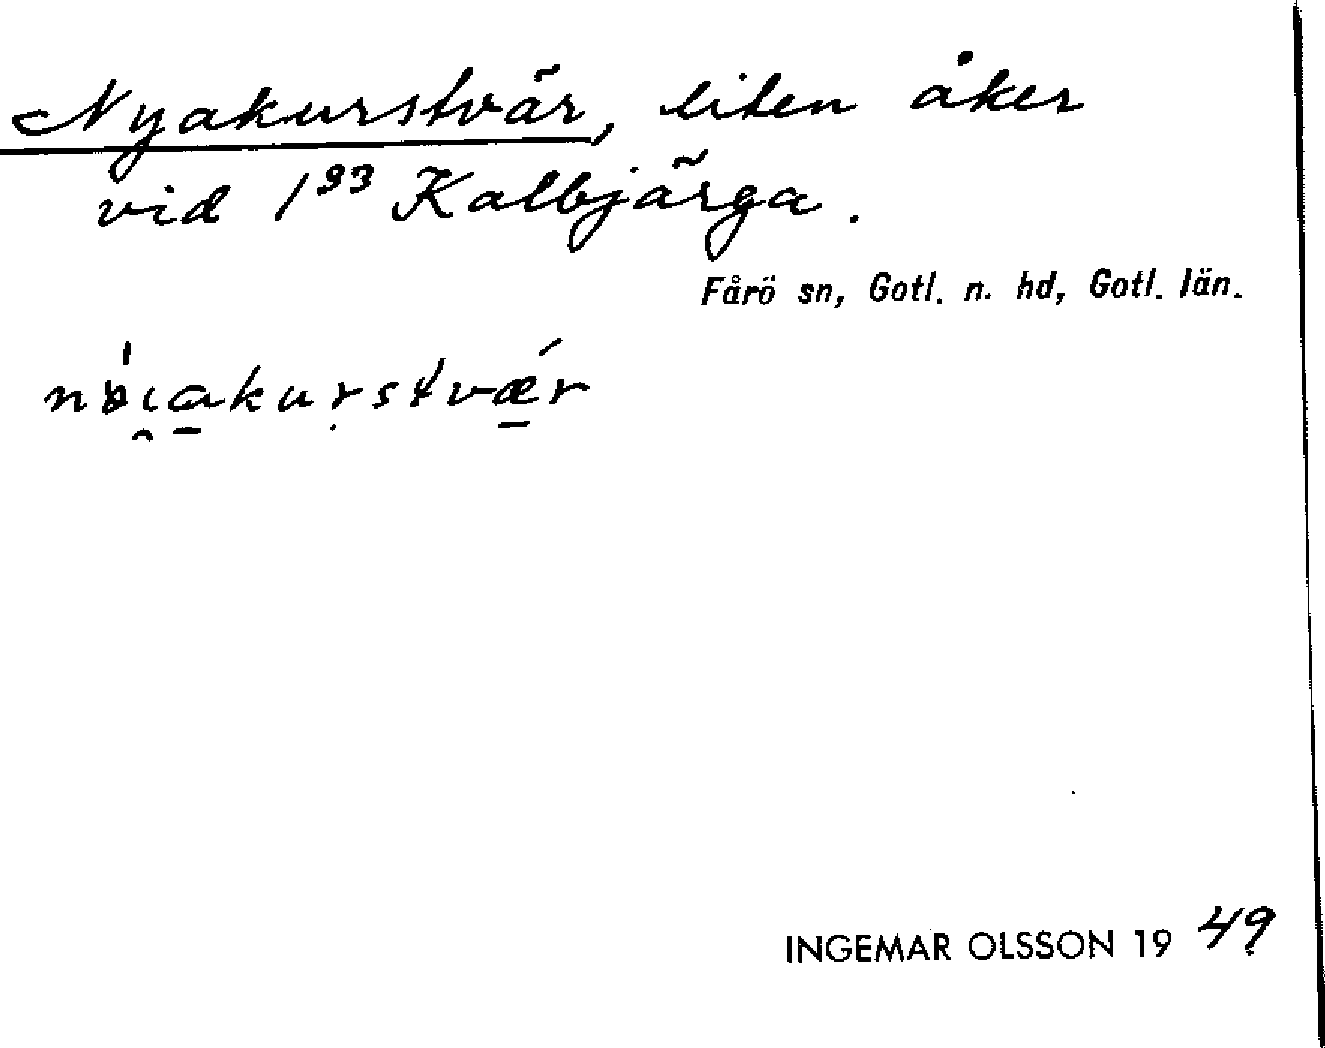 Nyakurstvär, liten åker
vid 1⁹³ Kalbjärga.
Fårö sn, Gotl. n. hd, Gotl. län.
INGEMAR OLSSON 19 49